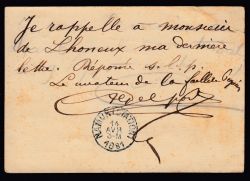 Je rappelle à monsieur
de Lhoneux ma dernière
lettre. Réponse s.l.p.
Le curateur de la faillite
NAMUR (STATION)
14
AVR
3-M
1881